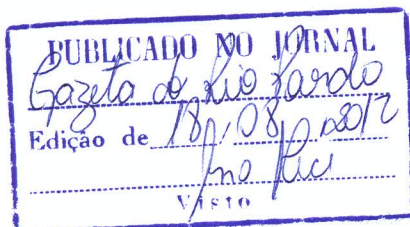 PUBLICADO NO JORNAL
Gazeta do Rio Pardo
Edição de 18/08/2012
Visto